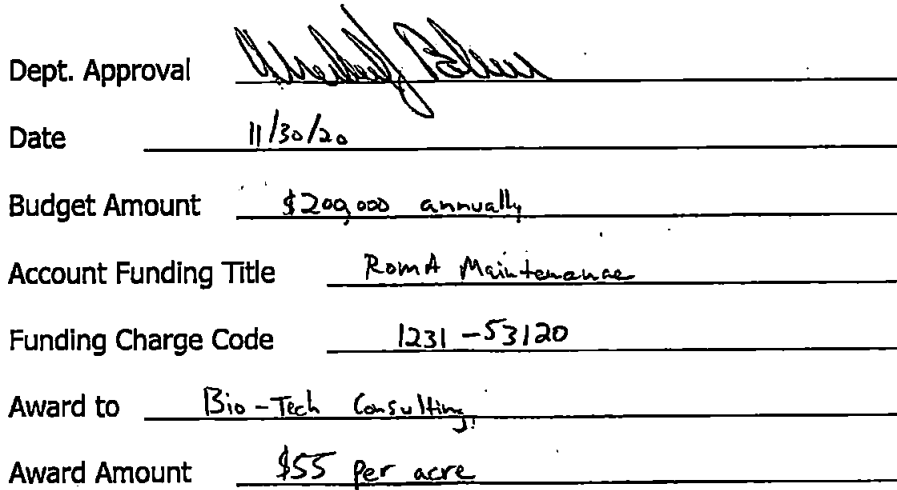 Dept. Approval
Date 11/30/20
Budget Amount $200,000 annually
Account Funding Title RomA Maintenance
Funding Charge Code 1231-53120
Award to Bio-Tech Consulting
Award Amount $55 per acre